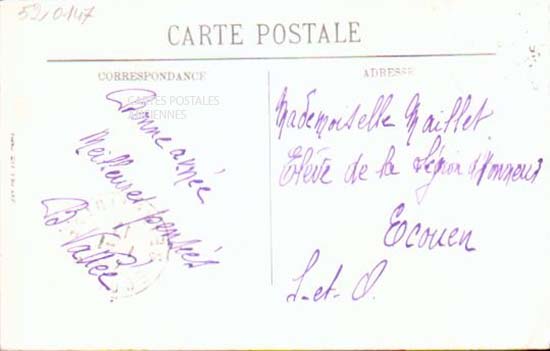 52,0147
CARTE POSTALE
CORRESPONDANCE
ADRESSE
CARTES POSTALES
ANCIENNES
Bonne année
Meilleures pensées
B. Vallée
Mademoiselle Maillet
Elève de la Légion d'Honneur
Ecouen
S-et-O.